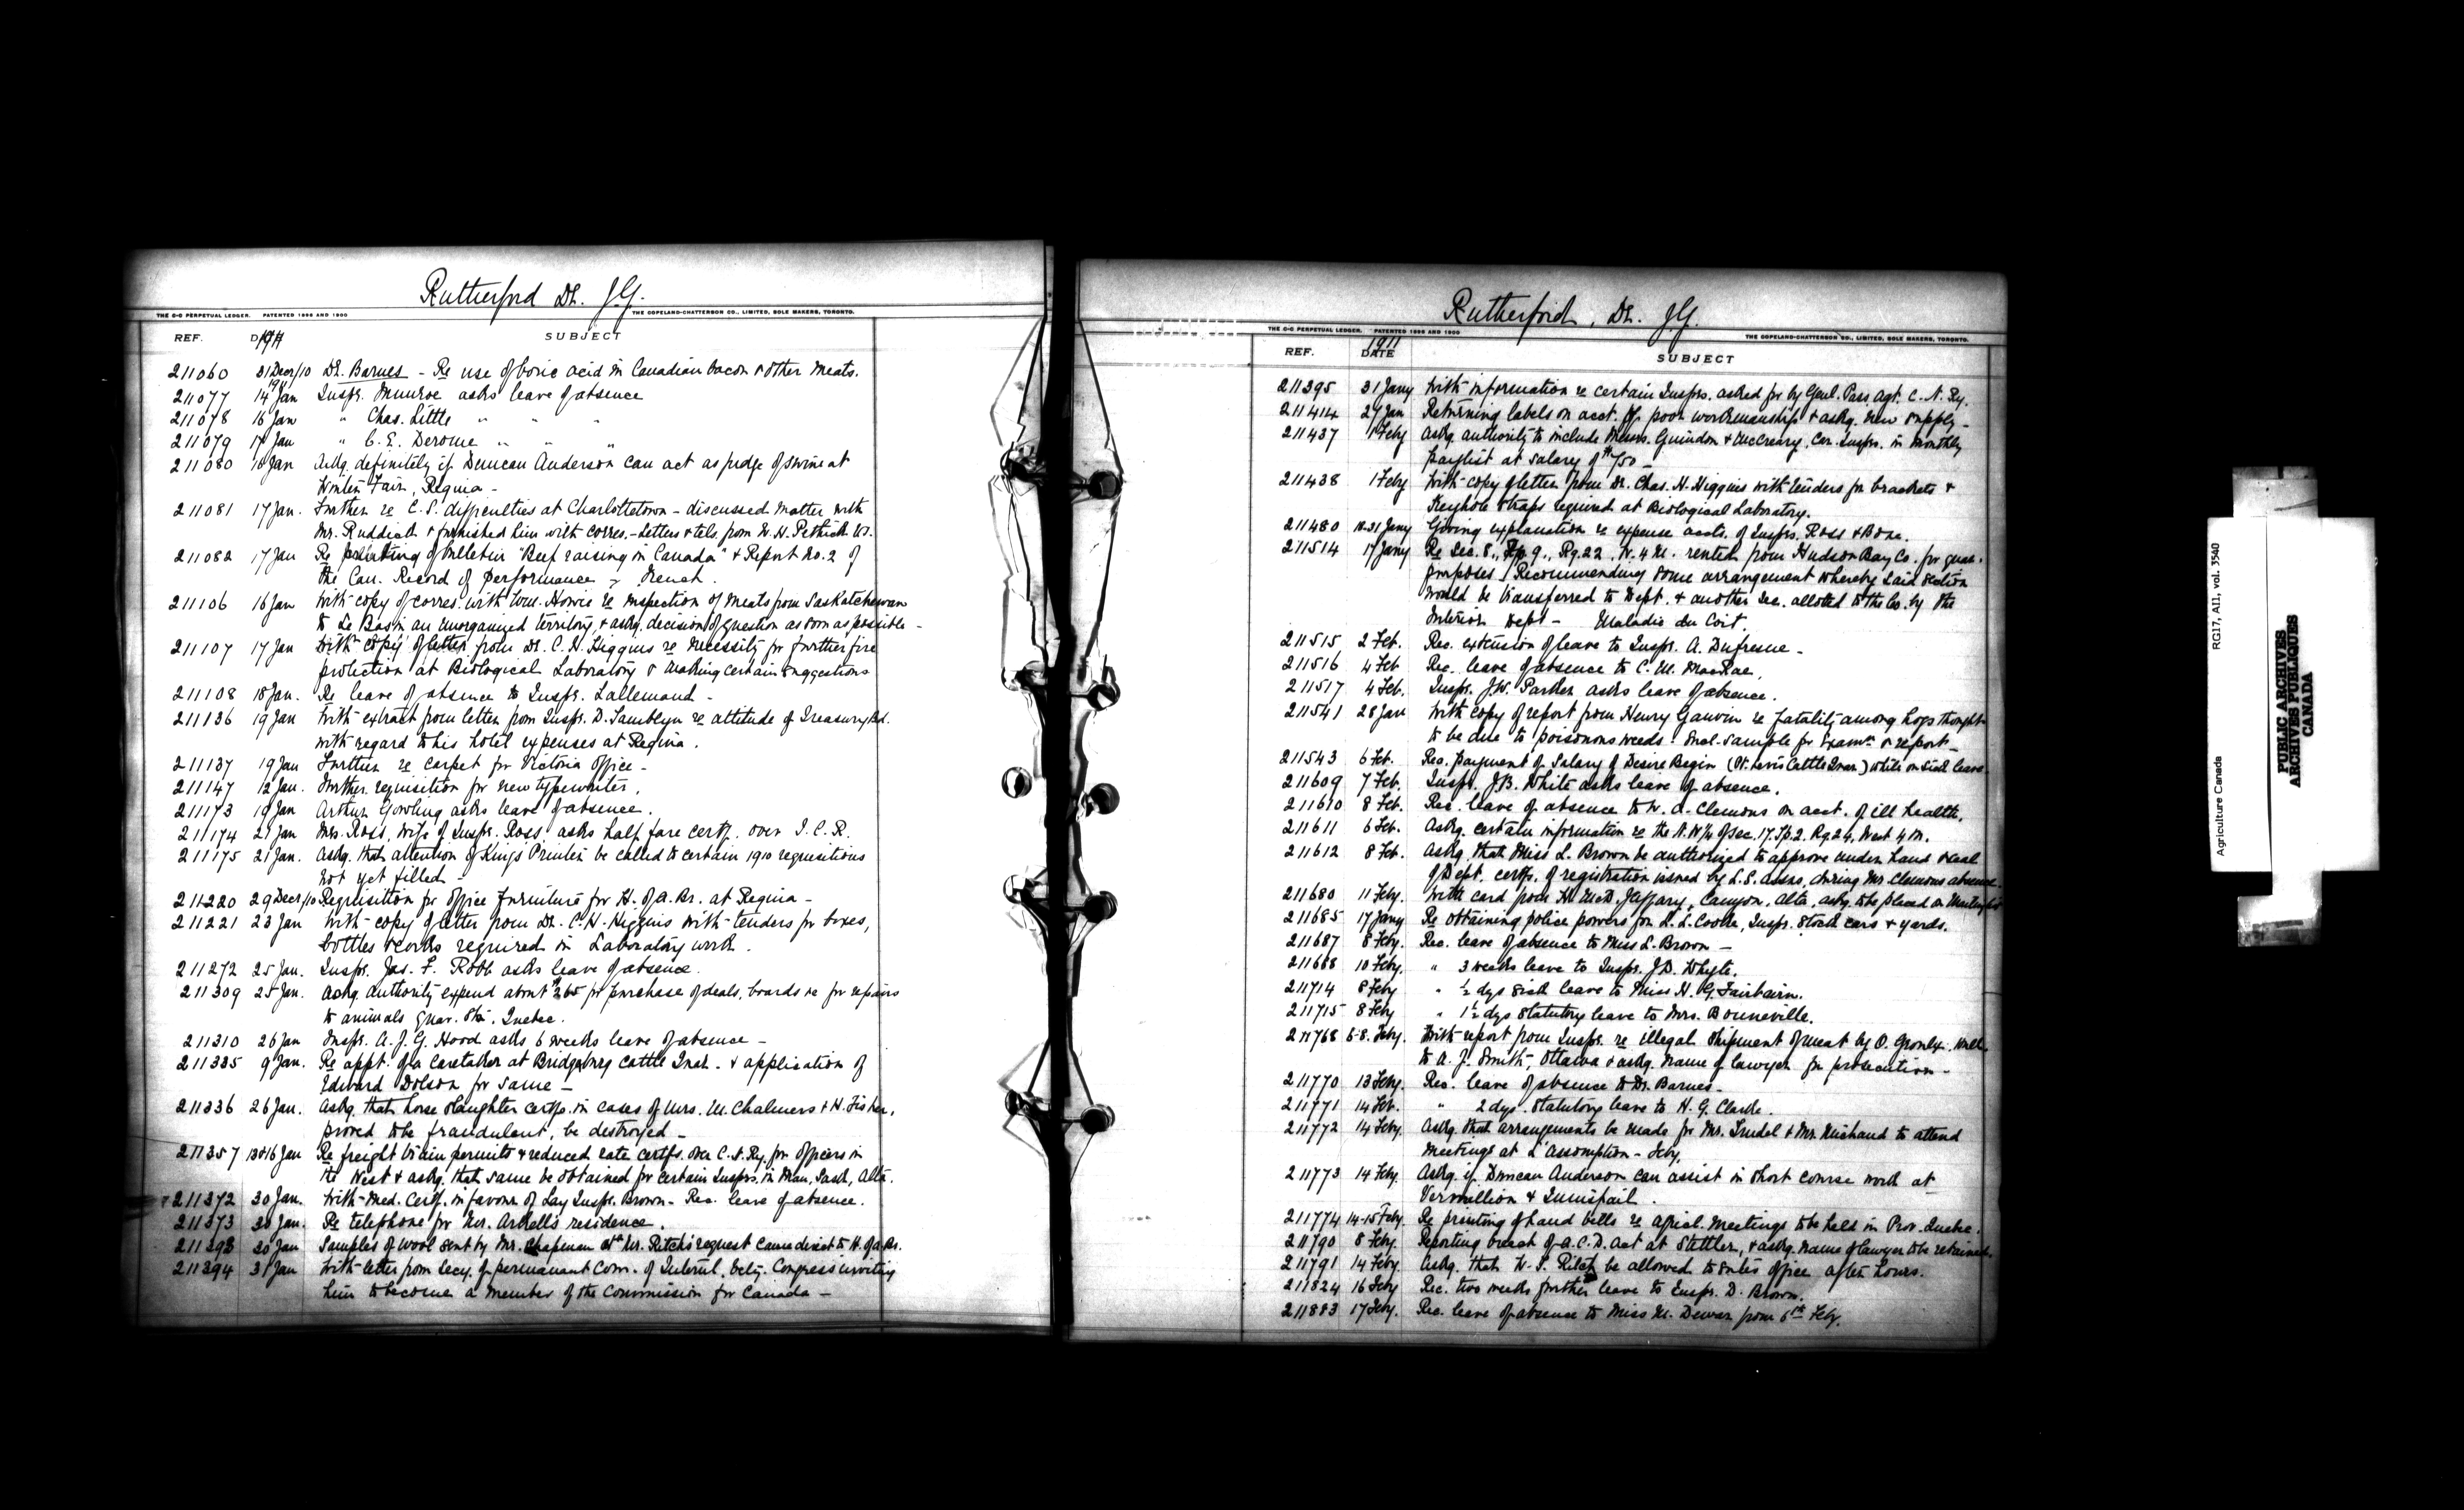 Rutherford Dr. J.G.
THE C-C PERPETUAL LEDGER. PATENTED 1896 AND 1900 THE COPELAND-CHATTERSON CO., LIMITED, SOLE MAKERS, TORONTO.
REF. 1911 SUBJECT
211060 31 Decr/10 Dr. Barnes - Re use of boric acid in Canadian bacon & other meats.
211077 1911 14 Jan Inspr. Munroe asks leave of absence
211078 16 Jan " Chas. Little " " "
211079 17 Jan " C. E. Derome " " "
211080 18 Jan Askg. definitely if Duncan Anderson can act as judge of swine at
Winter Fair, Regina -
211081 17 Jan. Further re C.S. difficulties at Charlottetown - discussed matter with
Mr. Ruddick & furnished him with corres. - Letters & tels. from W. H. Pethick V.S.
211082 17 Jan Re printing of bulletin "Beef raising in Canada" & Report No. 2 of
the Can. Record of Performance - French.
211106 16 Jan With copy of corres. with Wm. Howie re inspection of meats from Saskatchewan
to Le Pas in an unorganized territory, & askg. decision of question as soon as possible -
211107 17 Jan With copy of letter from Dr. C. H. Higgins re necessity for further fire
protection at Biological Laboratory & making certain suggestions
211108 18 Jan. Re leave of absence to Inspr. Lallemand -
211136 19 Jan With extract from letter from Inspr. D. Tamblyn re attitude of Treasury Bd.
with regard to his hotel expenses at Regina.
211137 19 Jan Further re carpet for Victoria Office -
211147 12 Jan. Further requisition for new typewriter.
211173 19 Jan Arthur Gowling asks leave of absence.
211174 21 Jan Mrs. Ross, wife of Inspr. Ross, asks half fare certf. over I.C.R.
211175 21 Jan. Askg. that attention of Kings Printer be called to certain 1910 requisitions
not yet filled -
211220 29 Decr/10 Requisition for office furniture for H. of A. Br. at Regina -
211221 23 Jan With copy of letter from Dr. C. H. Higgins with tenders for boxes,
bottles & corks required in Laboratory work.
211272 25 Jan. Inspr. Jas. F. Robb asks leave of absence.
211309 25 Jan. Askg. authority expend about $265 for purchase of deals, boards &c for repairs
to animals quar. Stn. Quebec.
211310 26 Jan Inspr. A. J. G. Hood asks 6 weeks leave of absence -
211335 9 Jan. Re appt. of a caretaker at Bridgeburg Cattle Quar. & application of
Edward Dolson for same -
211336 26 Jan. Askg. that horse slaughter certfs. in cases of Mrs. M. Chalmers & H. Fisher,
proved to be fraudulent, be destroyed -
211357 13&16 Jan Re freight train permits & reduced rate certfs. over C.N. Ry. for Officers in
the West & askg. that same be obtained for certain Insprs. in Man., Sask., Alta.
211372 30 Jan. With Med. Certf. in favour of Lay Inspr. Brown - Rec. leave of absence.
211373 30 Jan. Re telephone for Mr. Arkell's residence.
211393 30 Jan Samples of wool sent by Mr. Chapman at Mr. Ritch's request came direct to H. of A. Br.
211394 31 Jan With letter from Secy. of permanant Com. of Internl. Vety. Congress inviting
him to become a member of the Commission for Canada -
Rutherford, Dr. J.G.
THE C-C PERPETUAL LEDGER. PATENTED 1896 AND 1900 THE COPELAND-CHATTERSON CO., LIMITED, SOLE MAKERS, TORONTO.
REF. 1911 DATE SUBJECT
211395 31 Jany With information re certain Insprs. asked for by Genl. Pass. Agt. C.N. Ry.
211414 27 Jan Returning labels on acct. of poor workmanship & askg. new supply -
211437 1 Feby Askg. authority to include Messrs. Guindon & McCreary, Car. Insprs. in monthly
paylist at salary of $150 -
211438 1 Feby With copy of letter from Dr. Chas. H. Higgins with tenders for brackets &
Keyhole Straps required at Biological Laboratory.
211480 18-31 Jany Giving explanation re expense accts. of Insprs. Ross & Bone.
211514 17 Jany Re Sec. 8., Tp. 9., Rg. 22, W. 4 M. rented from Hudson Bay Co. for quar.
purposes - Recommending some arrangement whereby said section
would be transferred to Dept. & another Sec. alloted to the Co. by the
Interior Dept - Maladie du Coit.
211515 2 Feb. Rec. extension of leave to Inspr. A. Dufresne -
211516 4 Feb Rec. leave of absence to C. M. MacRae,
211517 4 Feb. Inspr. J.W. Parker asks leave of absence.
211541 28 Jan With copy of report from Henry Gauvin re fatality among hogs thought
to be due to poisonous weeds. Encl. sample for Exam'n & report -
211543 6 Feb. Rec. payment of Salary of Desire Begin (Pt. Levis Cattle Quar.) while on sick leave.
211609 7 Feb. Inspr. J.B. White asks leave of absence.
211610 8 Feb. Rec. leave of absence to W. A. Clemons on acct. of ill health.
211611 6 Feb. Askg. certain information re the N.W¼ of Sec. 17. Tp. 2. Rg. 24, West 4 M.
211612 8 Feb. Askg. that Miss L. Brown be authorized to approve under hand & seal
of Dept. certfs. of registration issued by L.S. Assns. during Mr. Clemons absence -
211680 11 Feby. With card from H. McD. Jeffary, Canyon, Alta. askg. to be placed on Mailing list
211685 17 Jany Re obtaining police powers for R. L. Cooke, Inspr. Stock cars & yards.
211687 8 Feby. Rec. leave of absence to Miss L. Brown -
211688 10 Feby. " 3 weeks leave to Inspr. J.D. Whyte.
211714 8 Feby " ½ dys sick leave to Miss H. G. Fairbairn.
211715 8 Feby " 1½ dys Statutory leave to Mrs. Bonneville.
211768 6-8. Feby. With report from Inspr. re illegal shipment of meat by O.
to A. J. Smith, Ottawa & askg. name of lawyer for prosecution -
211770 13 Feby. Rec. leave of absence to Dr. Barnes -
211771 14 Feb. " 2 dys. Statutory leave to H. G. Clarke.
211772 14 Feby. Askg. that arrangements be made for Mr. Trudel & Mr. Michaud to attend
meetings at L'Assomption - Feby.
211773 14 Feby. Askg. if Duncan Anderson can assist in Short course work at
Vermillion & Innisfail.
211774 14-15 Feby. Re printing of hand bills re agricl. meetings to be held in Prov. Quebec.
211790 8 Feby. Reporting breach of A.C.D. Act at Stettler, & askg. name of lawyer to be retained.
211791 14 Feby. Askg. that W. S. Ritch be allowed to enter office after hours.
211824 16 Feby Rec. two weeks further leave to Inspr. D. Brown.
211883 17 Feby. Rec. leave of absence to Miss M. Dewar from 6th Feby.
Agriculture Canada RG17, AII, vol. 3540
PUBLIC ARCHIVES
ARCHIVES PUBLIQUES
CANADA